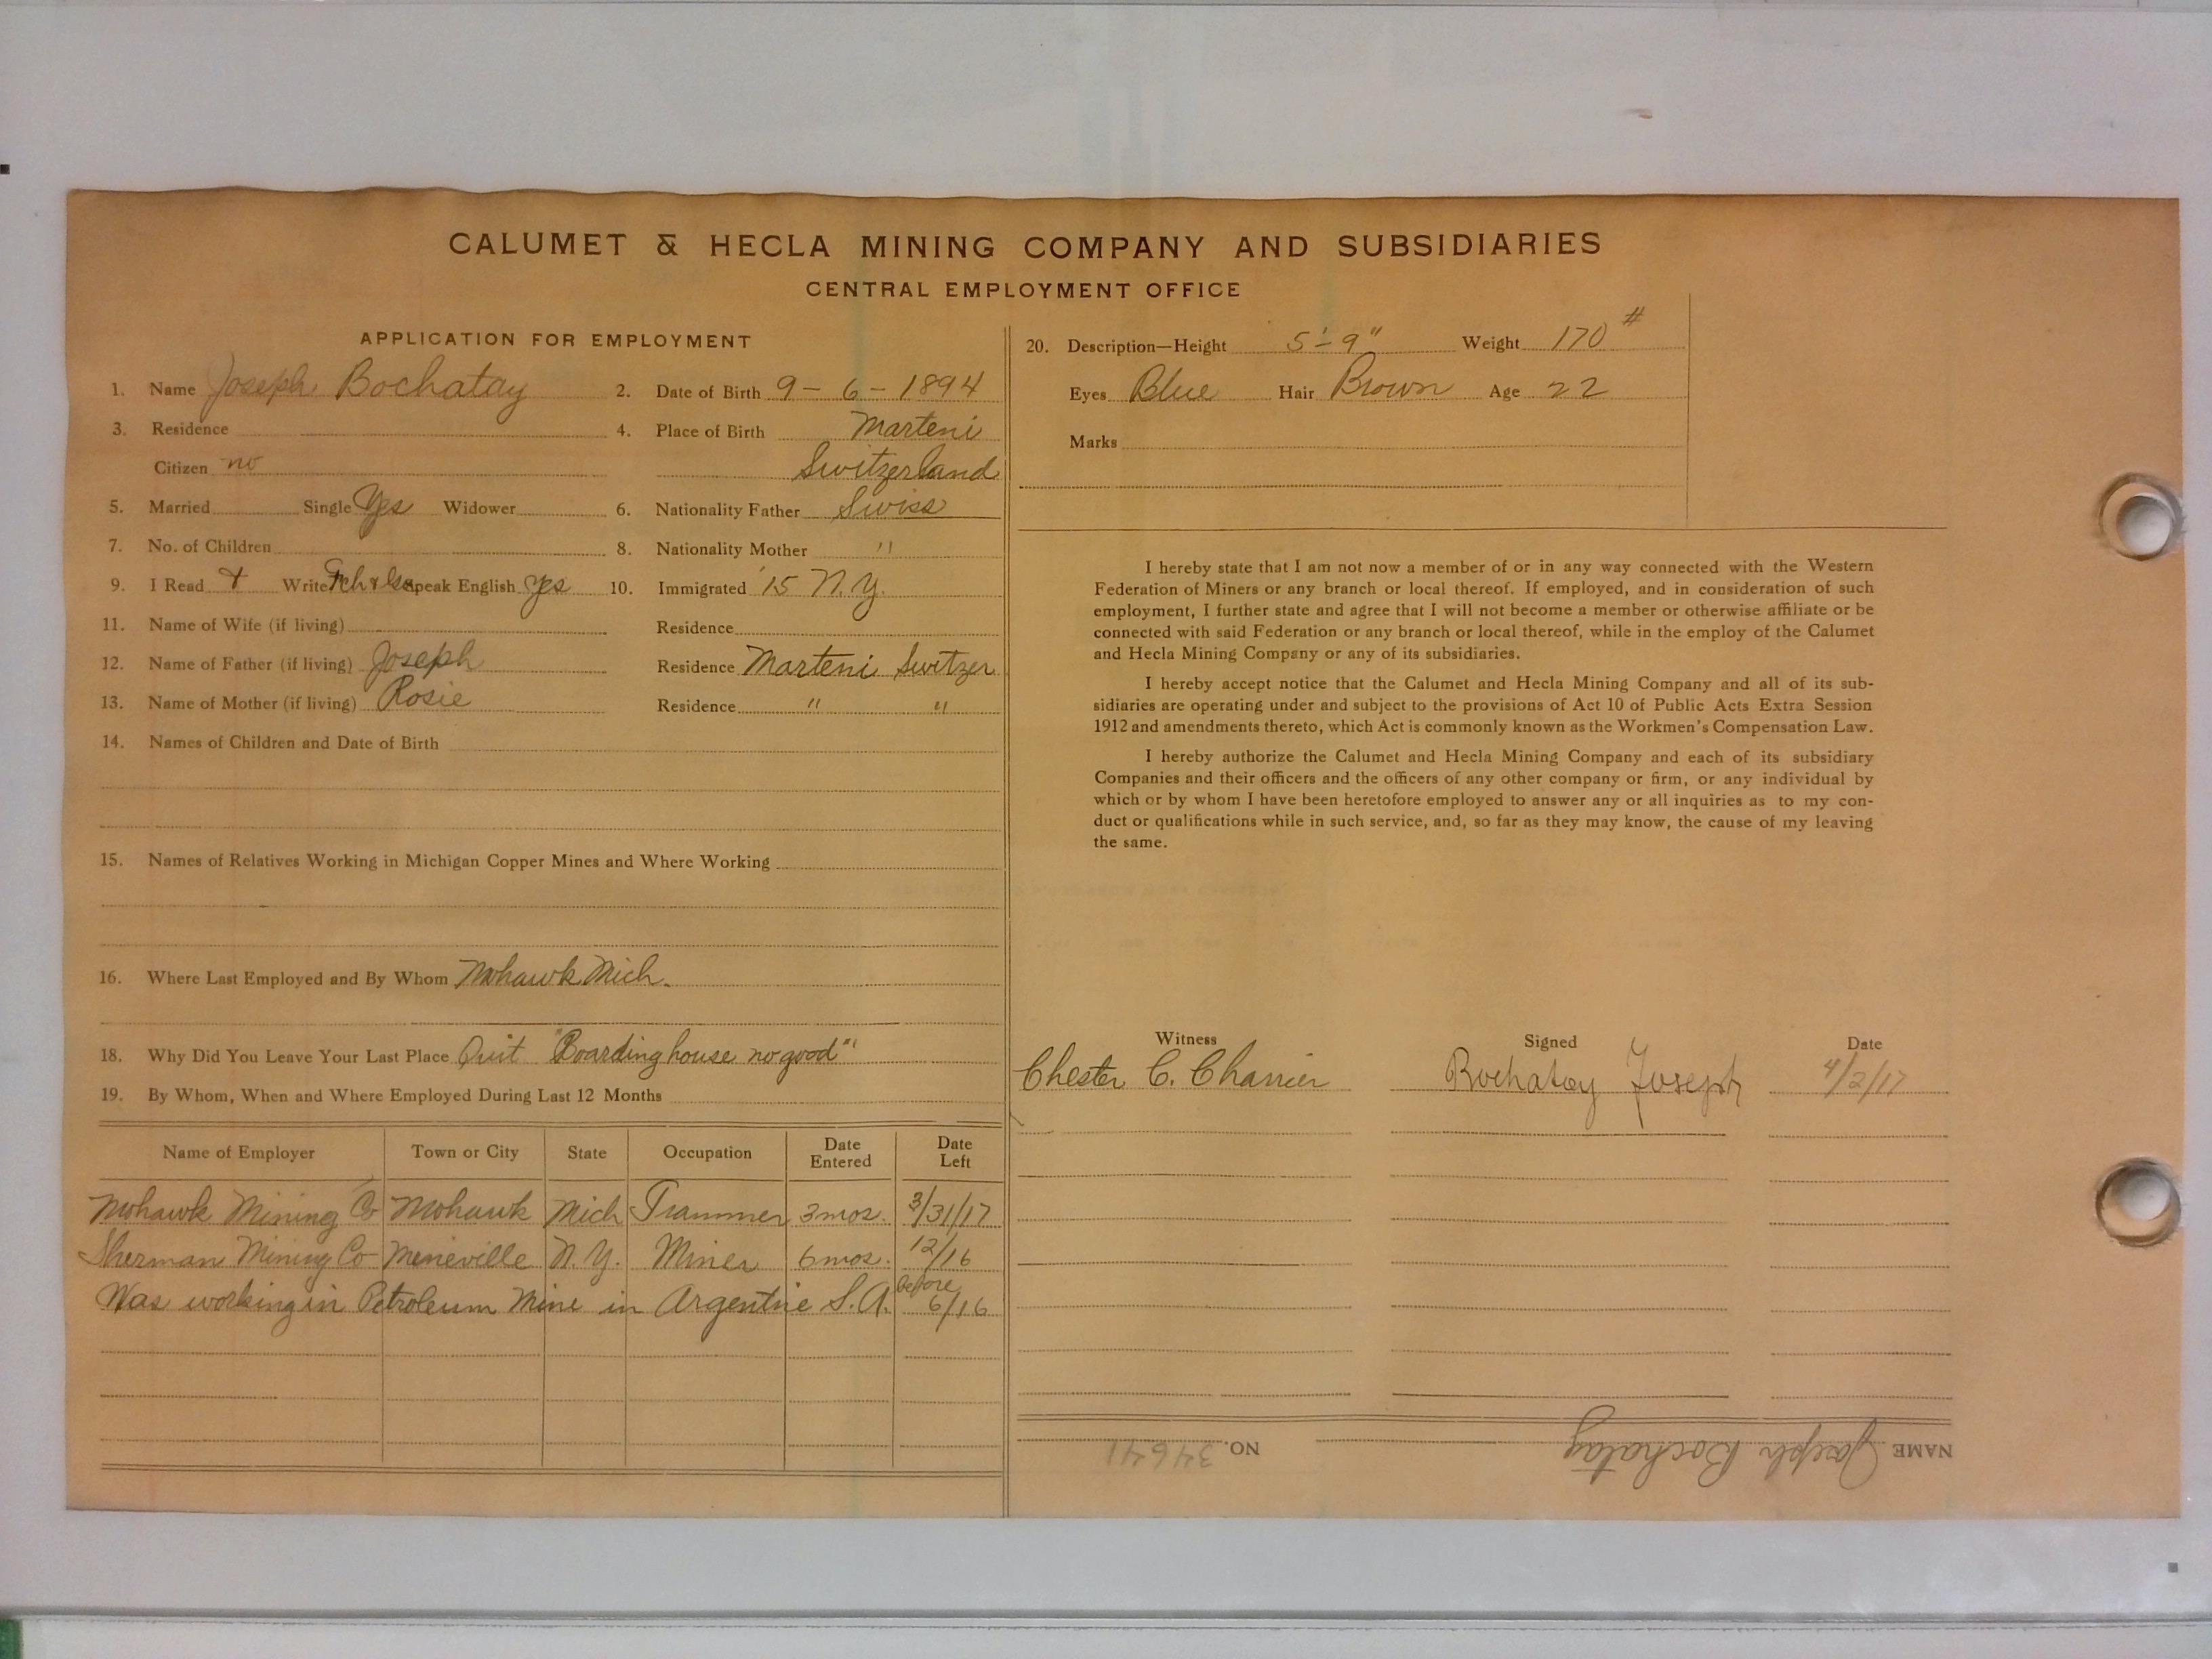 CALUMET & HECLA MINING COMPANY AND SUBSIDIARIES
CENTRAL EMPLOYMENT OFFICE
APPLICATION FOR EMPLOYMENT
1. Name Joseph Bochatay 2. Date of Birth 9-6-1894
3. Residence 4. Place of Birth Marteni
Citizen no Switzerland
5. Married Single Yes Widower 6. Nationality Father Swiss
7. No. of Children 8. Nationality Mother "
9. I Read + Write Fch & Speak English Yes 10. Immigrated '15 N.Y.
11. Name of Wife (if living) Residence
12. Name of Father (if living) Joseph Residence Marteni Switzer
13. Name of Mother (if living) Rosie Residence " "
14. Names of Children and Date of Birth
15. Names of Relatives Working in Michigan Copper Mines and Where Working
16. Where Last Employed and By Whom Mohawk Mich.
18. Why Did You Leave Your Last Place Quit "Boarding house no good"
19. By Whom, When and Where Employed During Last 12 Months
Name of Employer Town or City State Occupation Date Entered Date Left
Mohawk Mining Co Mohawk Mich Trammer 3 mos. 3/31/17
Sherman Mining Co Mineville N.Y. Miner 6 mos. 12/16
Was working in Petroleum Mine in Argentine S.A. before 6/16
20. Description—Height 5'-9" Weight 170#
Eyes Blue Hair Brown Age 22
Marks
I hereby state that I am not now a member of or in any way connected with the Western
Federation of Miners or any branch or local thereof. If employed, and in consideration of such
employment, I further state and agree that I will not become a member or otherwise affiliate or be
connected with said Federation or any branch or local thereof, while in the employ of the Calumet
and Hecla Mining Company or any of its subsidiaries.
I hereby accept notice that the Calumet and Hecla Mining Company and all of its sub-
sidiaries are operating under and subject to the provisions of Act 10 of Public Acts Extra Session
1912 and amendments thereto, which Act is commonly known as the Workmen's Compensation Law.
I hereby authorize the Calumet and Hecla Mining Company and each of its subsidiary
Companies and their officers and the officers of any other company or firm, or any individual by
which or by whom I have been heretofore employed to answer any or all inquiries as to my con-
duct or qualifications while in such service, and, so far as they may know, the cause of my leaving
the same.
Witness Signed Date
Chester C. Charrier Bochatay Joseph 4/2/17
NAME Joseph Bochatay NO. 34641